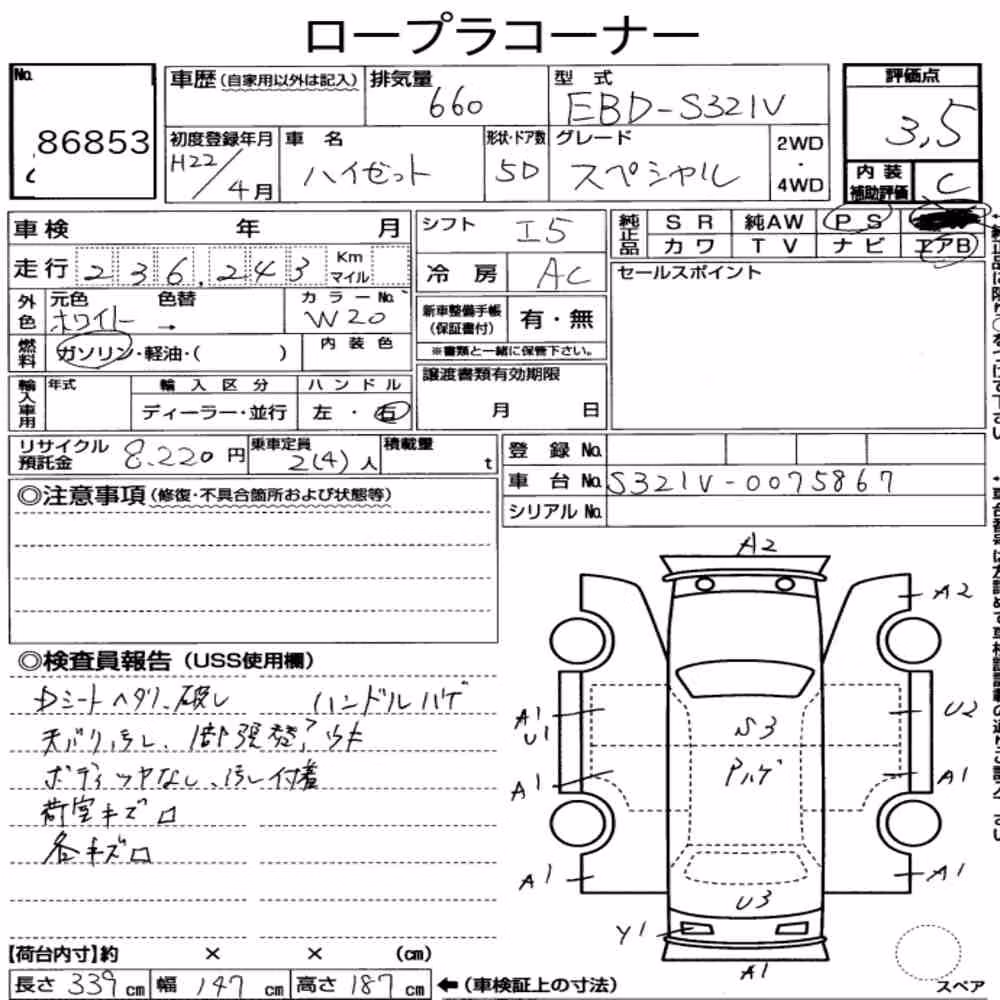 ロープラコーナー
No.
86853
車歴(自家用以外は記入)
排気量
660
型式
EBD-S321V
評価点
3.5
初度登録年月
H22/4月
車名
ハイゼット
形状・ドア数
5D
グレード
スペシャル
2WD
・
4WD
内装
補助評価
C
車検 年 月
シフト
I5
純正品
SR 純AW PS
カワ TV ナビ エアB
走行 236,243 Km
マイル
冷房 AC
セールスポイント
外色
元色 色替 カラーNo.
ホワイト → W20
新車整備手帳
(保証書付)
有・無
※書類と一緒に保管下さい。
燃料
ガソリン・軽油・( )
内装色
譲渡書類有効期限
月 日
輸入車用
年式
輸入区分
ハンドル
ディーラー・並行
左・右
リサイクル
預託金
8.220円
乗車定員
2(4)人
積載量
t
登録No.
車台No. S321V-0075867
シリアルNo.
◎注意事項(修復・不具合箇所および状態等)
◎検査員報告(USS使用欄)
Dシートヘタリ、破レ ハンドルハゲ
天バリ汚レ、
ボディツヤなし、汚レ付着
荷室キズロ
各キズロ
A2
A2
A1
U1
U2
S3
Pハゲ
A1
A1
A1
A1
U3
Y1
A1
【荷台内寸】約 × × (cm)
長さ 339 cm 幅 147 cm 高さ 187 cm
←(車検証上の寸法)
スペア